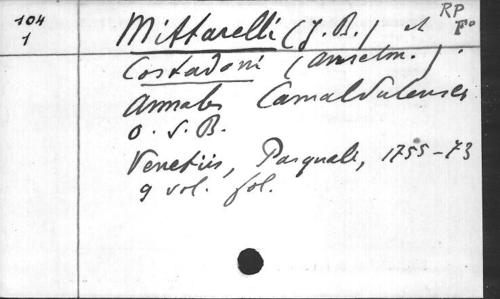 104
1
RP
F°
Mittarelli (J. B.) et
Costadoni (Anselm.).
Annales Camaldulenses
O. S. B.
Venetiis, Pasquali, 1755-73
9 vol. fol.